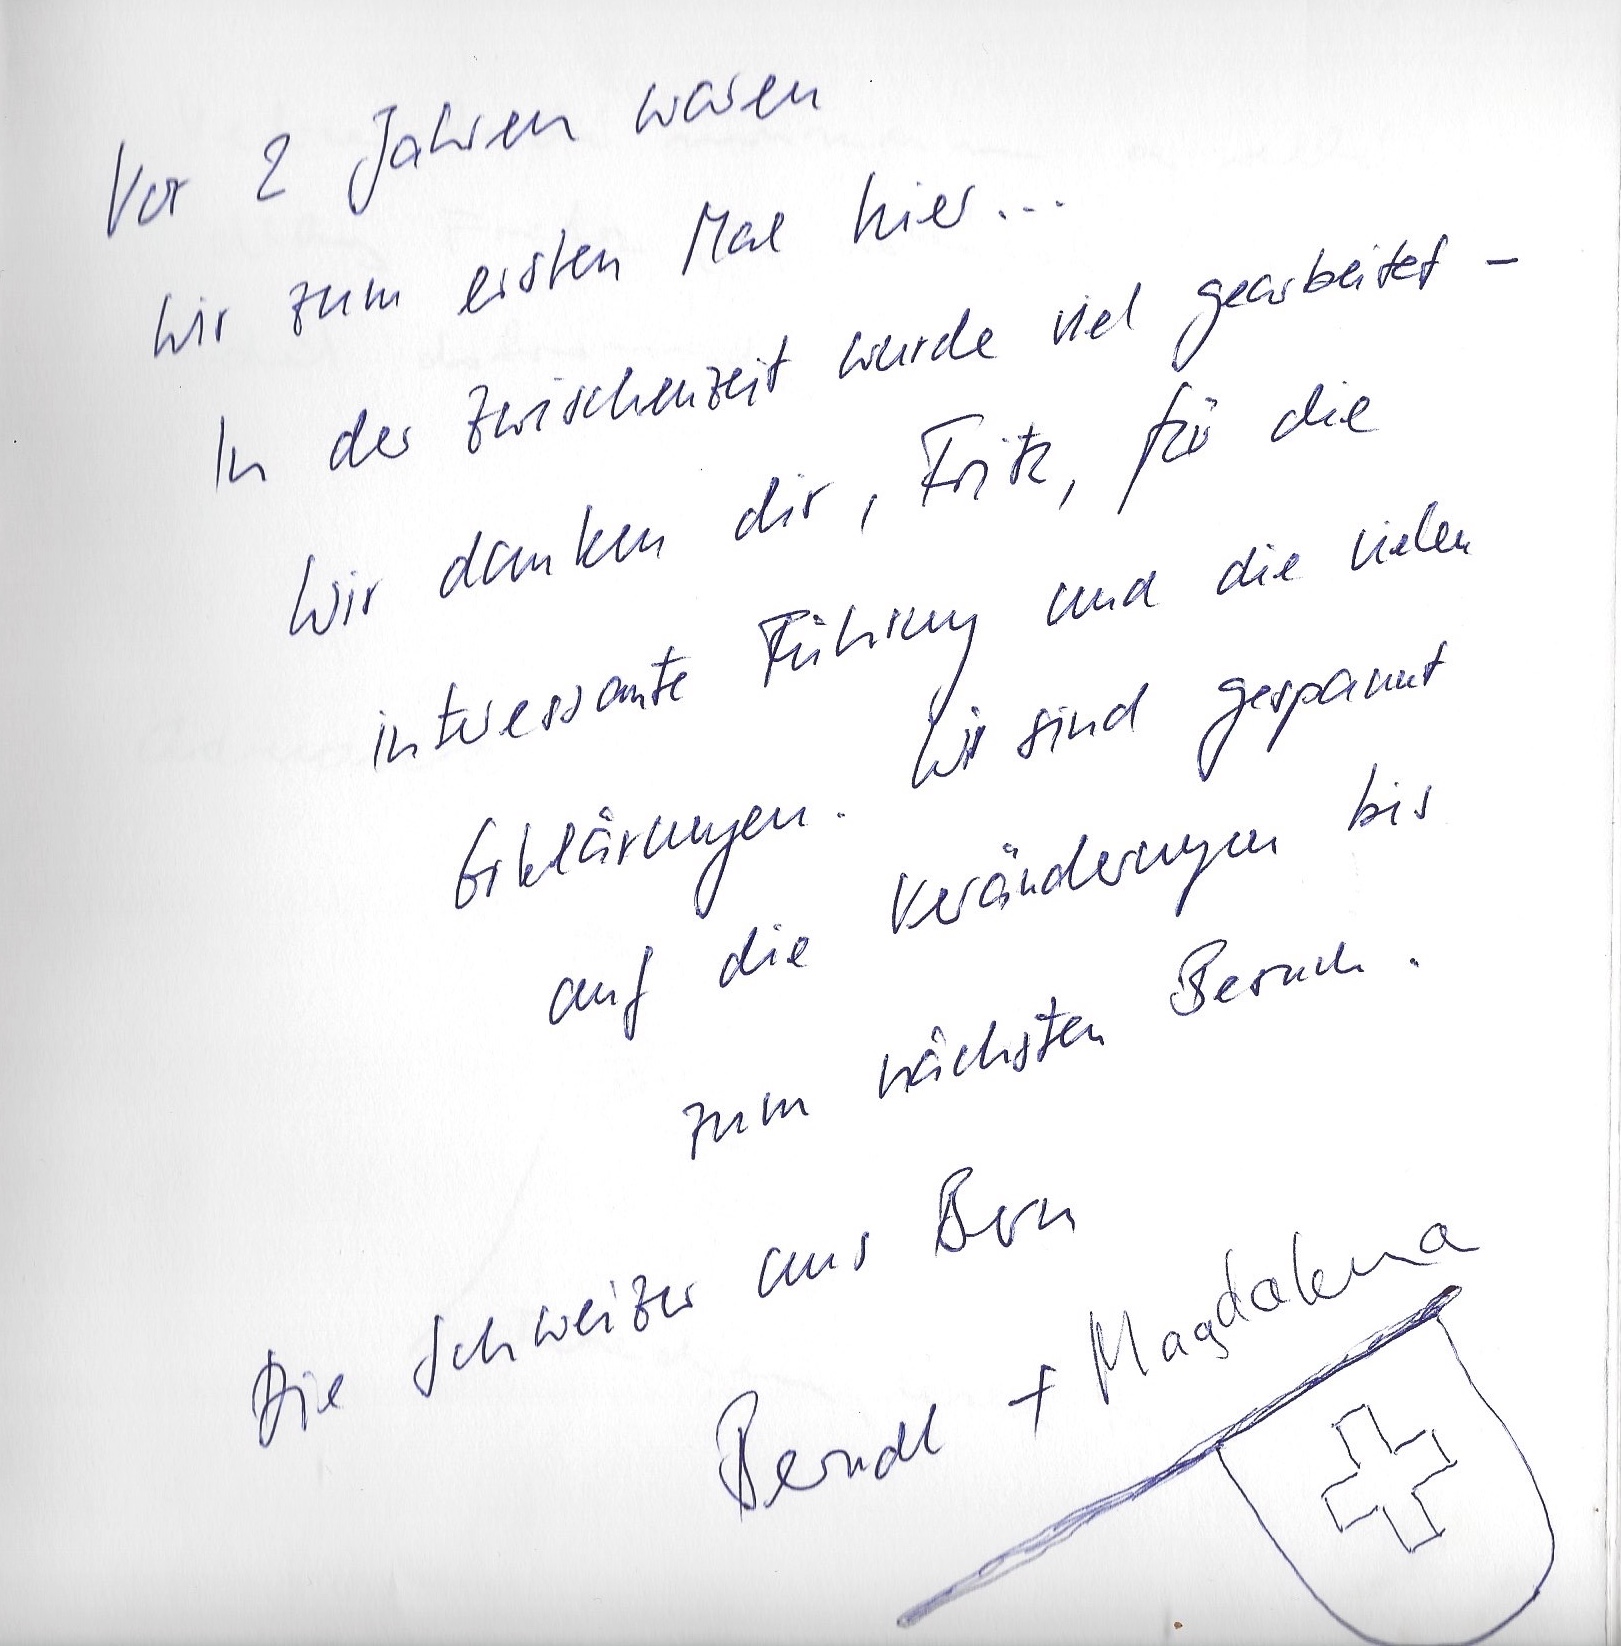 Vor 2 Jahren waren
wir zum ersten Mal hier...
In der Zwischenzeit wurde viel gearbeitet -
Wir danken dir, Fritz, für die
interessante Führung und die vielen
Erklärungen. Wir sind gespannt
auf die Veränderungen bis
zum nächsten Besuch.
Die Schweizer aus Bern
Berndl + Magdalena